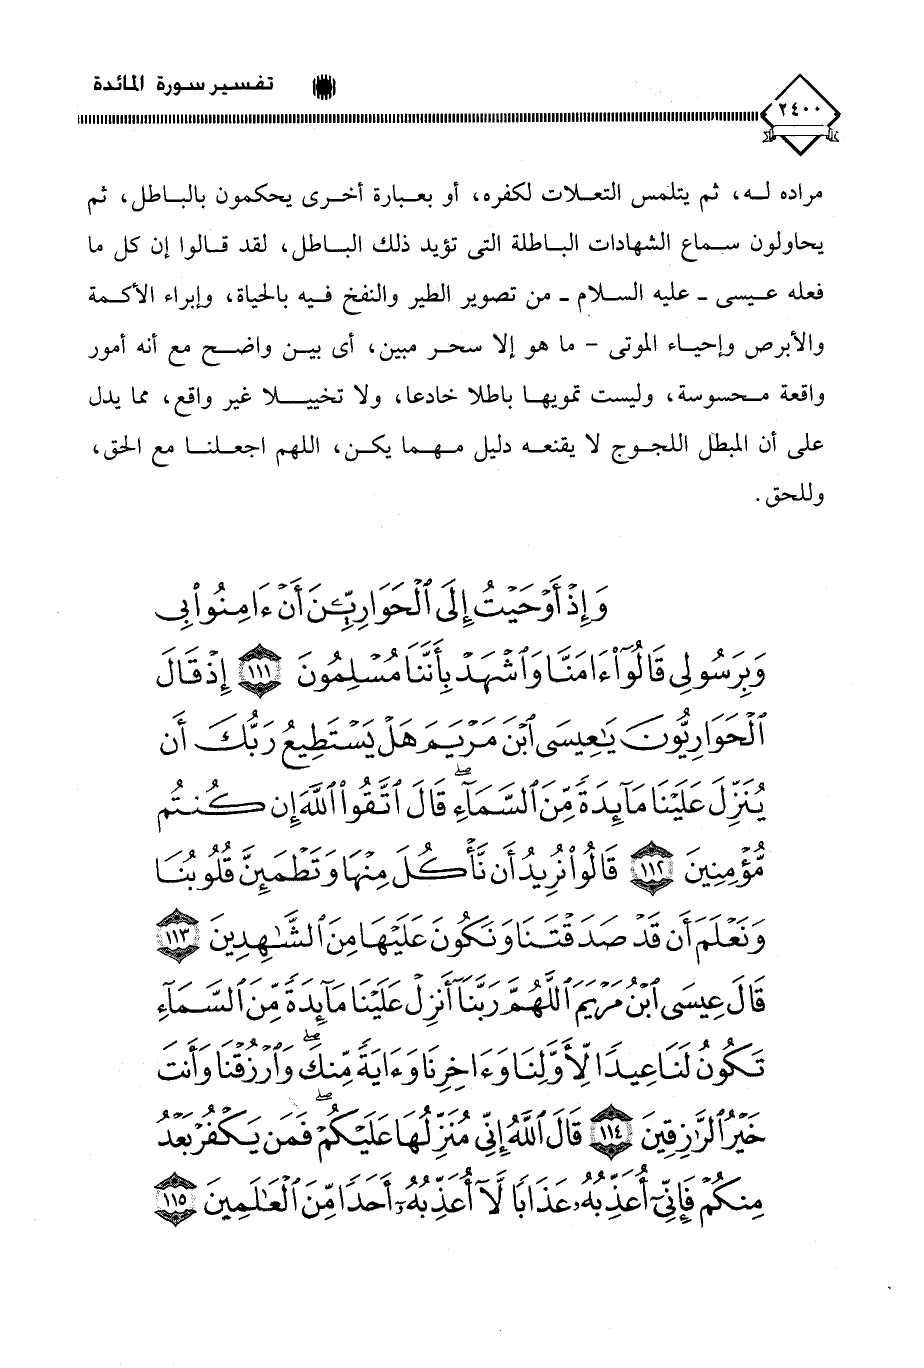 ٢٤٠٠ تفسير سورة المائدة
مراده له، ثم يتلمس التعلات لكفره، أو بعبارة أخرى يحكمون بالباطل، ثم
يحاولون سماع الشهادات الباطلة التى تؤيد ذلك الباطل، لقد قالوا إن كل ما
فعله عيسى - عليه السلام - من تصوير الطير والنفخ فيه بالحياة، وإبراء الأكمة
والأبرص وإحياء الموتى - ما هو إلا سحر مبين، أى بين واضح مع أنه أمور
واقعة محسوسة، وليست تمويها باطلا خادعا، ولا تخييلا غير واقع، مما يدل
على أن المبطل اللجوج لا يقنعه دليل مهما يكن، اللهم اجعلنا مع الحق،
وللحق.
وَإِذْ أَوْحَيْتُ إِلَى ٱلْحَوَارِيِّـۧنَ أَنْ ءَامِنُوا۟ بِى
وَبِرَسُولِى قَالُوٓا۟ ءَامَنَّا وَٱشْهَدْ بِأَنَّنَا مُسْلِمُونَ ١١١ إِذْ قَالَ
ٱلْحَوَارِيُّونَ يَـٰعِيسَى ٱبْنَ مَرْيَمَ هَلْ يَسْتَطِيعُ رَبُّكَ أَن
يُنَزِّلَ عَلَيْنَا مَآئِدَةً مِّنَ ٱلسَّمَآءِ ۖ قَالَ ٱتَّقُوا۟ ٱللَّهَ إِن كُنتُم
مُّؤْمِنِينَ ١١٢ قَالُوا۟ نُرِيدُ أَن نَّأْكُلَ مِنْهَا وَتَطْمَئِنَّ قُلُوبُنَا
وَنَعْلَمَ أَن قَدْ صَدَقْتَنَا وَنَكُونَ عَلَيْهَا مِنَ ٱلشَّـٰهِدِينَ ١١٣
قَالَ عِيسَى ٱبْنُ مَرْيَمَ ٱللَّهُمَّ رَبَّنَآ أَنزِلْ عَلَيْنَا مَآئِدَةً مِّنَ ٱلسَّمَآءِ
تَكُونُ لَنَا عِيدًا لِّأَوَّلِنَا وَءَاخِرِنَا وَءَايَةً مِّنكَ ۖ وَٱرْزُقْنَا وَأَنتَ
خَيْرُ ٱلرَّٰزِقِينَ ١١٤ قَالَ ٱللَّهُ إِنِّى مُنَزِّلُهَا عَلَيْكُمْ ۖ فَمَن يَكْفُرْ بَعْدُ
مِنكُمْ فَإِنِّىٓ أُعَذِّبُهُۥ عَذَابًا لَّآ أُعَذِّبُهُۥٓ أَحَدًا مِّنَ ٱلْعَـٰلَمِينَ ١١٥